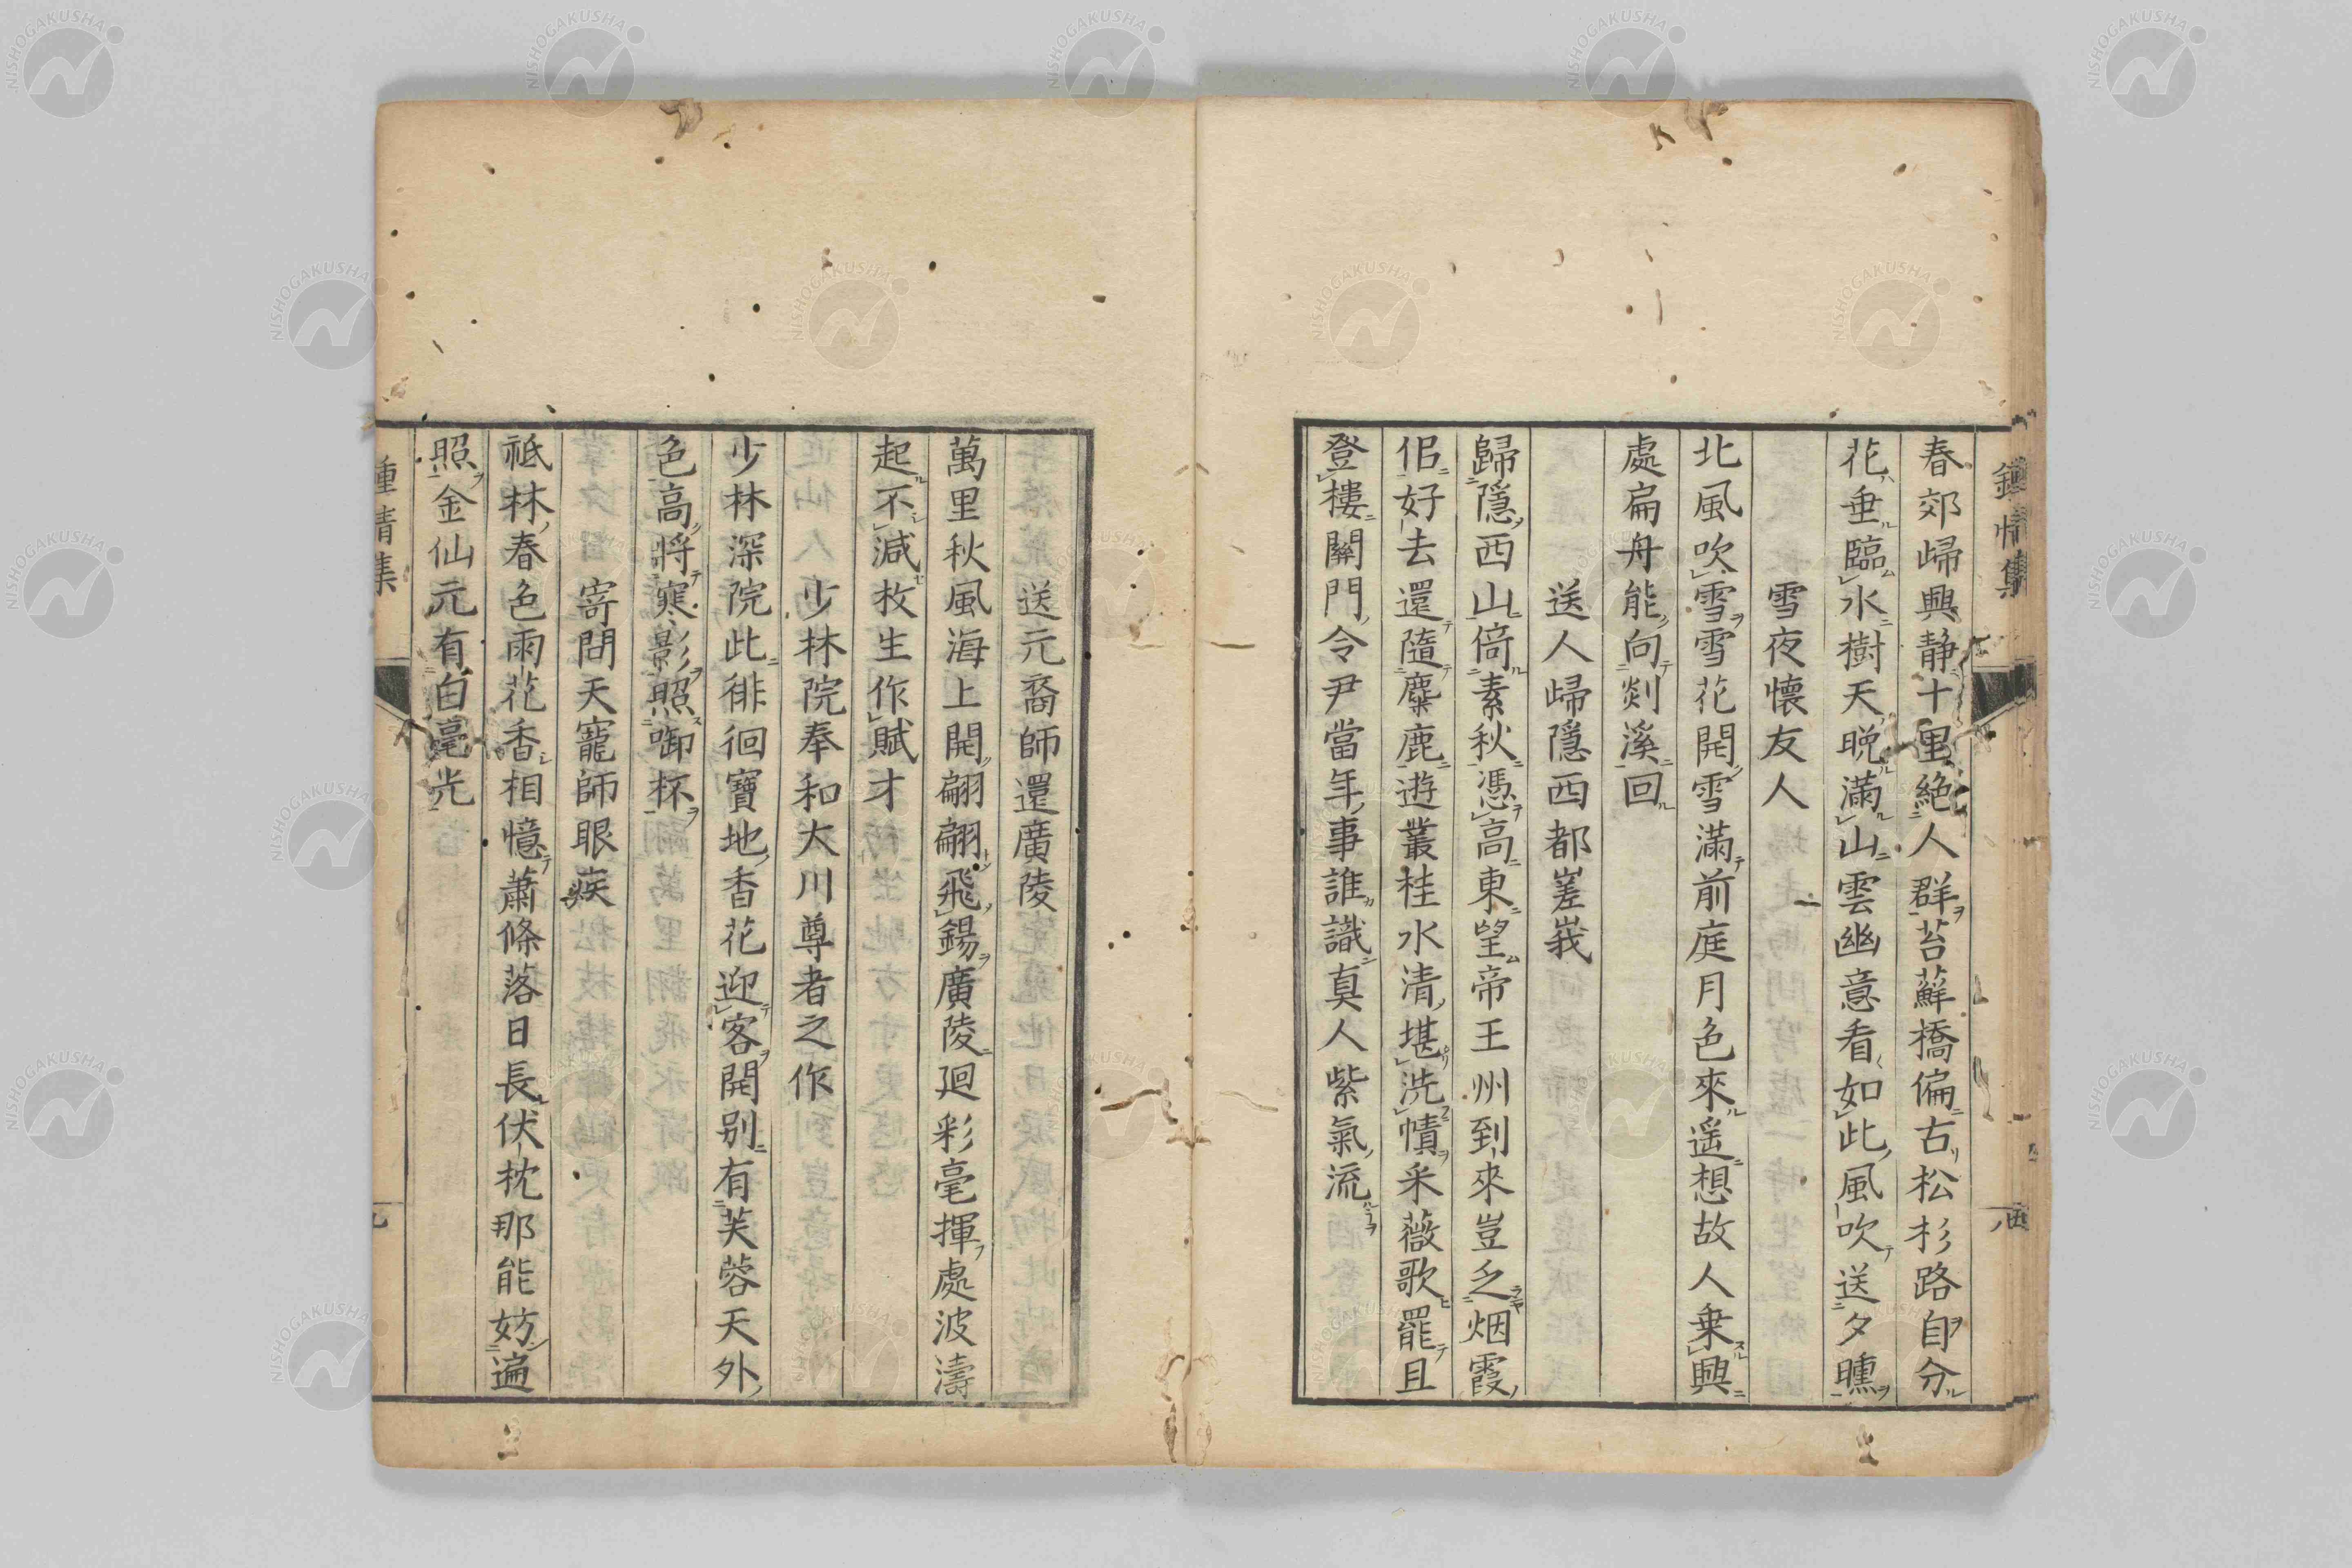 鍾情集
春郊歸興静十里絶人群苔蘚橋偏古松杉路自分
花垂臨水樹天晩滿山雲幽意看如此風吹送夕曛
雪夜懷友人
北風吹雪雪花開雪滿前庭月色來遥想故人乗興
處扁舟能向剡溪回
送人歸隱西都嵳峩
歸隱西山倚素秋憑高東望帝王州到來豈乏烟霞
侶好去還隨麋鹿遊叢桂水清堪洗幘采薇歌罷且
登樓關門令尹當年事誰識真人紫氣流
送元裔師還廣陵
萬里秋風海上開翩翩飛錫廣陵廻彩毫揮處波濤
起不減枚生作賦才
少林院奉和大川尊者之作
少林深院此徘徊寶地香花迎客開别有芙蓉天外
色高將寒影照啣杯
寄問天寵師眼疾
祗林春色雨花香相憶蕭條落日長伏枕那能妨遍
照金仙元有白毫光
鍾情集
NISHOGAKUSHA